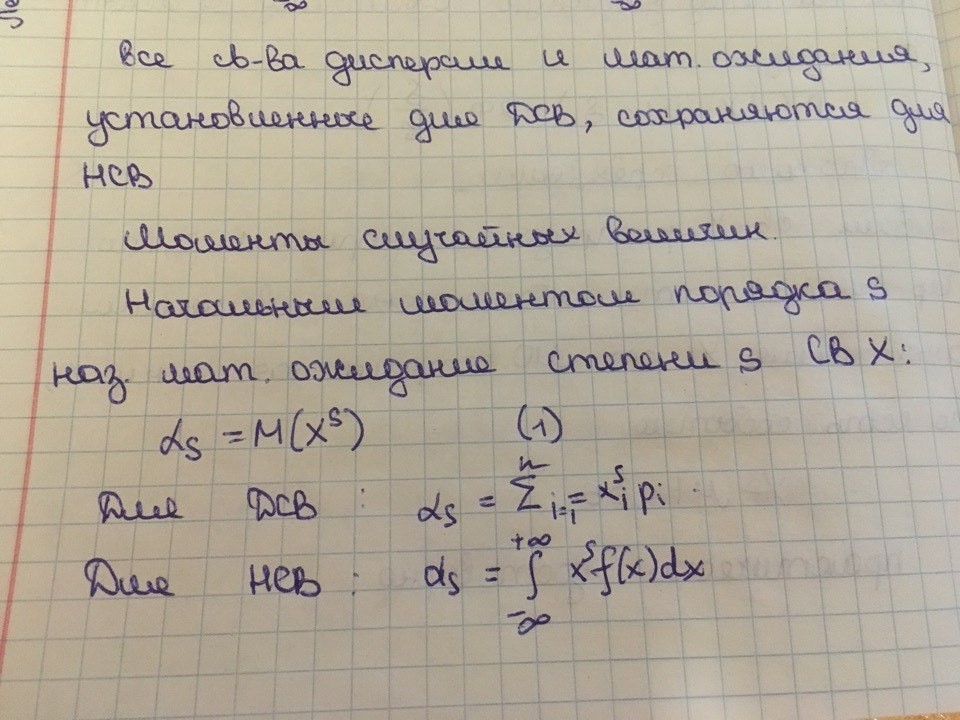 все св-ва дисперсии и мат. ожидания,
установленные для ДСВ, сохраняются для
НСВ
Моменты случайных величин.
Начальным моментом порядка s
наз. мат. ожидание степени s СВ X:
αs = M(X^s) (1)
Для ДСВ : αs = n Σ i=i = x_i^s pi
Для НСВ : αs = +∞ ∫ -∞ x^s f(x)dx